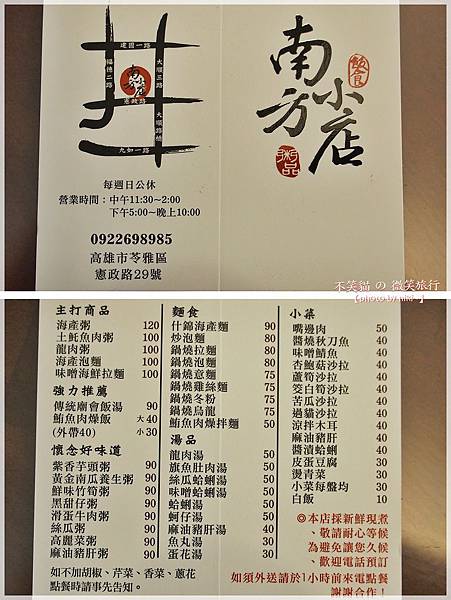 建國一路
福德二路
大順三路
南方小店
憲政路
大順路橋
九如一路
每週日公休
營業時間：中午11:30~2:00
下午5:00~晚上10:00
0922698985
高雄市苓雅區
憲政路29號
南方小店
飯食
粥品
不笑貓 の 微笑旅行
主打商品
海產粥 120
土魠魚肉粥 100
龍肉粥 100
海產泡麵 100
味噌海鮮拉麵 100
強力推薦
傳統廟會飯湯 90
鮪魚肉燥飯 大40
(外帶40) 小30
懷念好味道
紫香芋頭粥 90
黃金南瓜養生粥 90
鮮味竹筍粥 90
黑甜仔粥 90
滑蛋牛肉粥 90
絲瓜粥 90
高麗菜粥 90
麻油豬肝粥 90
如不加胡椒、芹菜、香菜、蔥花
點餐時請事先告知。
麵食
什錦海產麵 90
炒泡麵 80
鍋燒拉麵 80
鍋燒泡麵 80
鍋燒意麵 75
鍋燒雞絲麵 75
鍋燒冬粉 75
鍋燒烏龍 75
鮪魚肉燥拌麵 50
湯品
龍肉湯 50
旗魚肚肉湯 50
絲瓜蛤蜊湯 50
味噌蛤蜊湯 50
蛤蜊湯 50
蚵仔湯 50
麻油豬肝湯 40
魚丸湯 30
蛋花湯 30
小菜
嘴邊肉 50
醬燒秋刀魚 40
味噌鯖魚 40
杏鮑菇沙拉 40
蘆筍沙拉 40
筊白筍沙拉 40
苦瓜沙拉 40
過貓沙拉 40
涼拌木耳 40
麻油豬肝 40
醬漬蛤蜊 40
皮蛋豆腐 30
燙青菜 30
小菜每盤均 30
白飯 10
◎本店採新鮮現煮
、敬請耐心等候
為避免讓您久候
、歡迎電話預訂
如須外送請於1小時前來電點餐
謝謝合作！